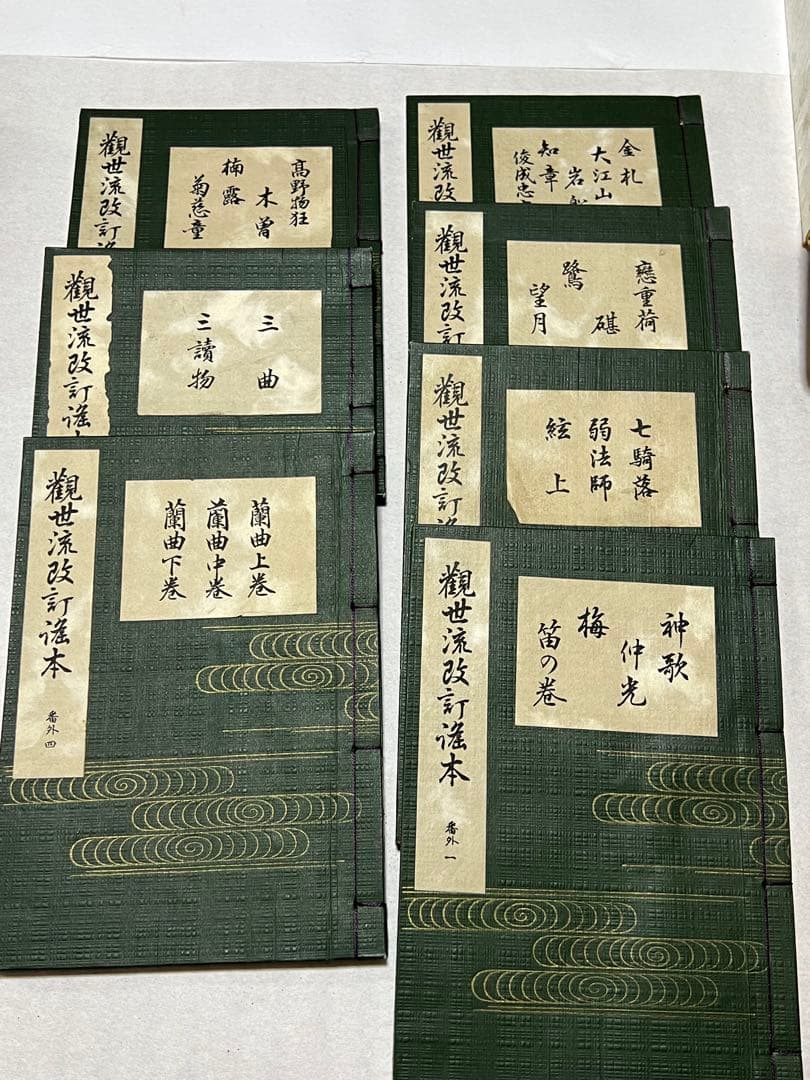 觀世流改訂
高野物狂
木曾
楠露
菊慈童
觀世流改訂謡本
三曲
三讀物
觀世流改訂謡本
番外四
蘭曲上巻
蘭曲中巻
蘭曲下巻
觀世流改
金札
大江山
岩船
知章
俊成忠
觀世流改訂
戀重荷
碪
鷺
望月
觀世流改訂
七騎落
弱法師
絃上
觀世流改訂謡本
番外一
神歌
仲光
梅
笛の巻